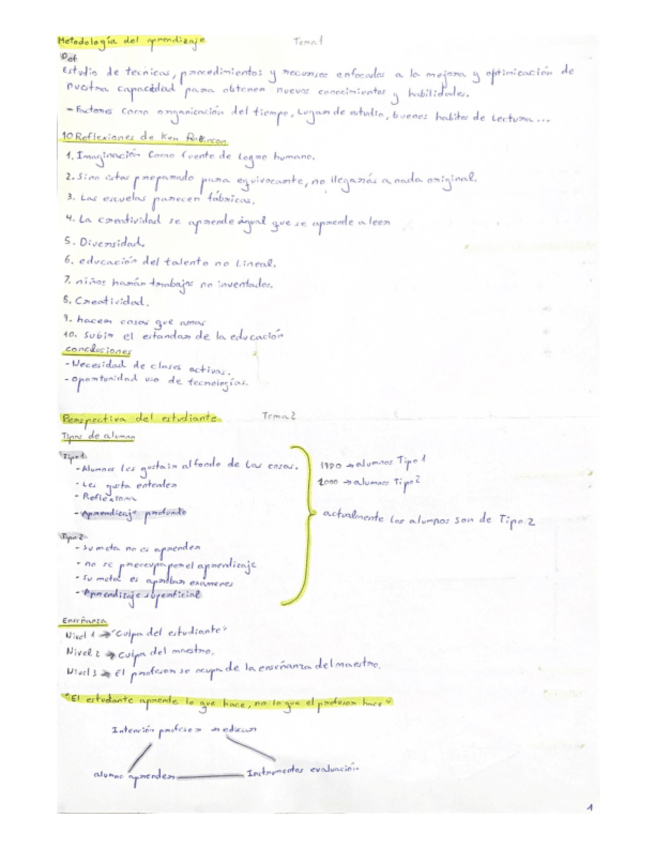 Metodología del aprendizaje Tema 1
Def
Estudio de tecnicas, procedimientos y recursos enfocados a la mejora y optimización de
nuestra capacidad para obtener nuevos conocimientos y habilidades.
- Factores como organización del tiempo, lugar de estudio, buenos habitos de lectura...
10 Reflexiones de Ken Robinson
1. Imaginación como fuente de logro humano.
2. Sino estas preparado para equivocarte, no llegarás a nada original.
3. Las escuelas parecen fábricas.
4. La creatividad se aprende igual que se aprende a leer
5. Diversidad.
6. educación del talento no lineal.
7. niños harán trabajos no inventados.
8. Creatividad.
9. hacer cosas que amas
10. Subir el estandar de la educación
conclusiones
- Necesidad de clases activas.
- oportunidad uso de tecnologías.
Perspectiva del estudiante Tema 2
Tipos de alumno
Tipo 1
- Alumnos les gusta ir al fondo de las cosas.
- Les gusta entender
- Reflexiona
- Aprendizaje profundo
1980 → alumnos Tipo 1
2000 → alumnos Tipo 2
actualmente los alumnos son de Tipo 2
Tipo 2
- Su meta no es aprender
- no se preocupa por el aprendizaje
- Su meta es aprobar exámenes
- Aprendizaje superficial
Enseñanza
Nivel 1 → "Culpa del estudiante"
Nivel 2 → Culpa del maestro.
Nivel 3 → El profesor se ocupa de la enseñanza del maestro.
"El estudiante aprende lo que hace, no lo que el profesor hace"
Intención profesor
alumno aprender Instrumentos evaluación
1